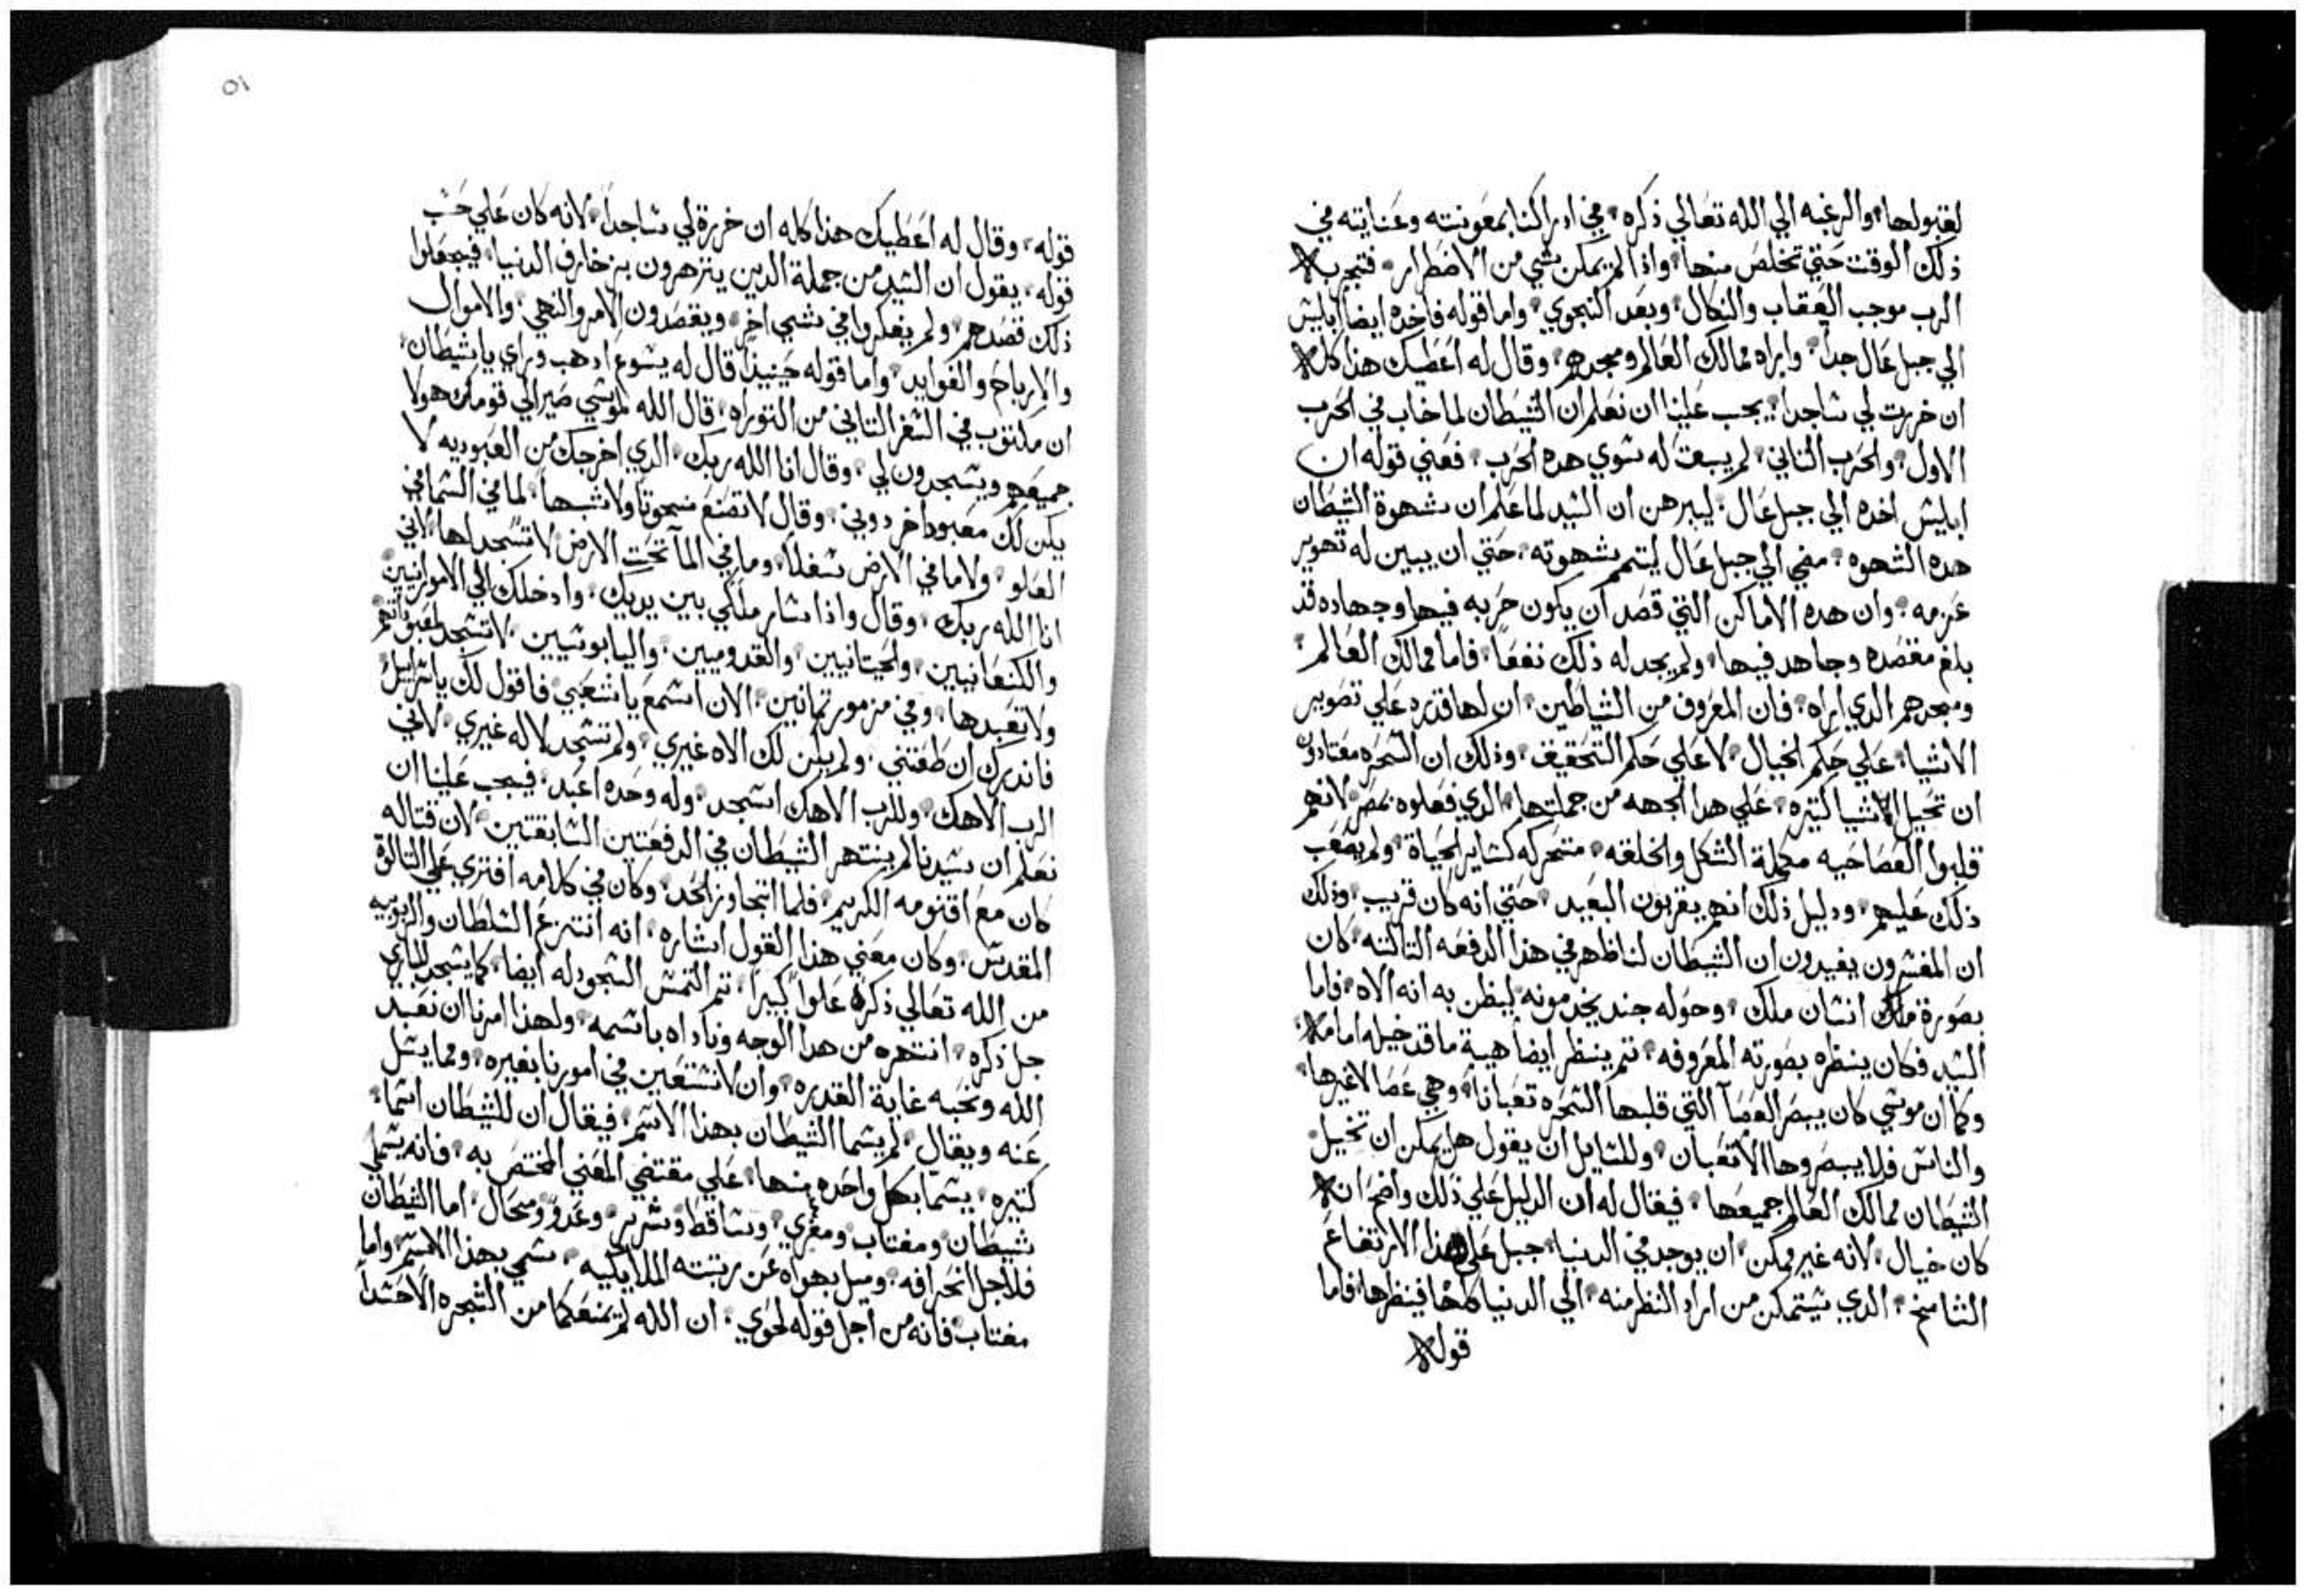 لقبولها، والرغبه الي الله تعالي ذكره، في ادراكنا بمعونته وعنايته في
ذلك الوقت حتي تخلص منها، واذا لم يمكن شي من الاضطرار، فتجربه
الرب موجب العقاب والنكال، وبعد النجوي، واما قوله فاخده ايضا ابليس
الي جبل عال جداً، واراه ممالك العالم ومجدهم، وقال له اعطيك هذا كله
ان خررت لي ساجداً، يجب علينا ان نعلم ان الشيطان لما خاب في الحرب
الاول، والحرب التاني، لم يبقت له سوي هده الحرب، فعني قوله ان
ابليس اخده الي جبل عال، ليبرهن ان السيد لما علم ان شهوة الشيطان
هده الشهوه، مضي الي جبل عال ليتمم شهوته، حتي ان يبين له تهوير
عزمه، وان هده الاماكن التي قصد ان يكون حربه فيها وجهاده قد
بلغ مقصده وجاهد فيها، ولم يجد له ذلك نفعاً، فاما ممالك العالم،
ومجدهم الدي اراه، فان المعروف من الشياطين، ان لها قدره علي تصوير
الاشيا، علي حكم الخيال، لا علي حكم التحقيق، وذلك ان السحره معتادون
ان تخيل الاشيا كتيره، علي هدا الجهه من جملتها، الدي فعلوه بمصر، لانهم
قلبوا العصا حيه مكملة الشكل والخلقه، متحركه كساير الحياة، ولم يصعب
ذلك عليهم، ودليل ذلك انهم يقربون البعيد، حتي انه كان قريب، وذلك
ان المفسرون يفيدون ان الشيطان لنا ظهر في هذا الدفعه التالته، كان
بصورة ملك انسان ملك، وحوله جند يخدمونه ليظن به انه الاه، فاما
السيد فكان ينظره بصورته المعروفه، تم ينظر ايضاً هية ما قد خيله امامه،
وكما ان موسي كان يبصر العصا التي قلبها السحره تعباناً، وهي عصا لا غيرها،
والناس فلا يبصروها الا تعبان، وللسايل ان يقول هل يمكن ان تخيل
الشيطان ممالك العالم جميعها، فيقال له ان الدليل علي ذلك واضح، انه
كان خيال، لانه غير ممكن، ان يوجد في الدنيا جبل علي هذا الارتفاع
الشامخ، الدي يستمكن من اراد النظر منه، الي الدنيا كلها فينظرها، فاما
قوله
٥١
قوله، وقال له اعطيك هذا كله ان خررة لي ساجداً، لانه كان علي حسب
قوله، يقول ان السيد من جملة الدين ينزهرون بزخارف الدنيا، فيجعلوا
ذلك قصدهم، ولم يفكروا في شي اخر، ويقصدون الامر والنهي، والاموال
والارباح والفوايد، واما قوله حينيذ قال له يسوع ادهب وراي يا شيطان،
ان مكتوب في السفر التاني من التوراه، قال الله لموسي صير الي قومك هولا
جميعهم ويسجدون لي، وقال انا الله ربك، الدي اخرجك من العبوديه لا
يكن لك معبودا خر دوني، وقال لا تصنع منحوتاً ولا شبهاً، لما في السما في
العلو، ولا ما في الارض سفلاً، وما في الما تحت الارض لا تسجد لها، لاني
انا الله ربك، وقال واذا سار ملكي بين يديك، وادخلك الي الاموانيين
والكنعانيين، والحيتانيين، والقدوميين، واليابوسيين، لا تسجد لمعبوداتهم
ولا تعبدها، وفي مزمور تمانين، الان اسمع يا شعبي فاقول لك يا اسراييل
فاندرك ان طعتني، ولم يكن لك الاه غيري، ولم تسجد لاله غيري، لاني
الرب الاهك، وللرب الاهك اسجد، وله وحده اعبد، فيجب علينا ان
نعلم ان سيدنا لم ينتهر الشيطان في الدفعتين السابقتين، لان قتاله
كان مع اقنومه الكريم، فلما اتجاوز الحد، وكان في كلامه افتري علي التالوة
المقدس، وكان معني هذا القول اشاره، انه انتزع السلطان والربوبيه
من الله تعالي ذكره علواً كبيراً، تم التمس السجود له ايضا، كما يسجد للباري
جل ذكره، انتهره من هدا الوجه وناداه باسمه، ولهذا امرنا ان نعبد
الله ونحبه غاية القدره، وان لا نستعين في امورنا بغيره، ومما يسل
عنه ويقال، لم يسما الشيطان بهذا الاسم، فيقال ان للشيطان اسما،
كتيره، يسما بكل واحده منها، علي مقتضي المعني المختص به، فانه يسما
شيطان ومغتاب ومغري، وساقط وشرير، وعدو ومحال، اما الشيطان
فلاجل انحرافه، وميل بهواه عن رتبته الملايكيه، سمي بهذا الاسم، واما
مغتاب، فانه من اجل قوله لحوي، ان الله لم يمنعكما من الشجره الا حسداً